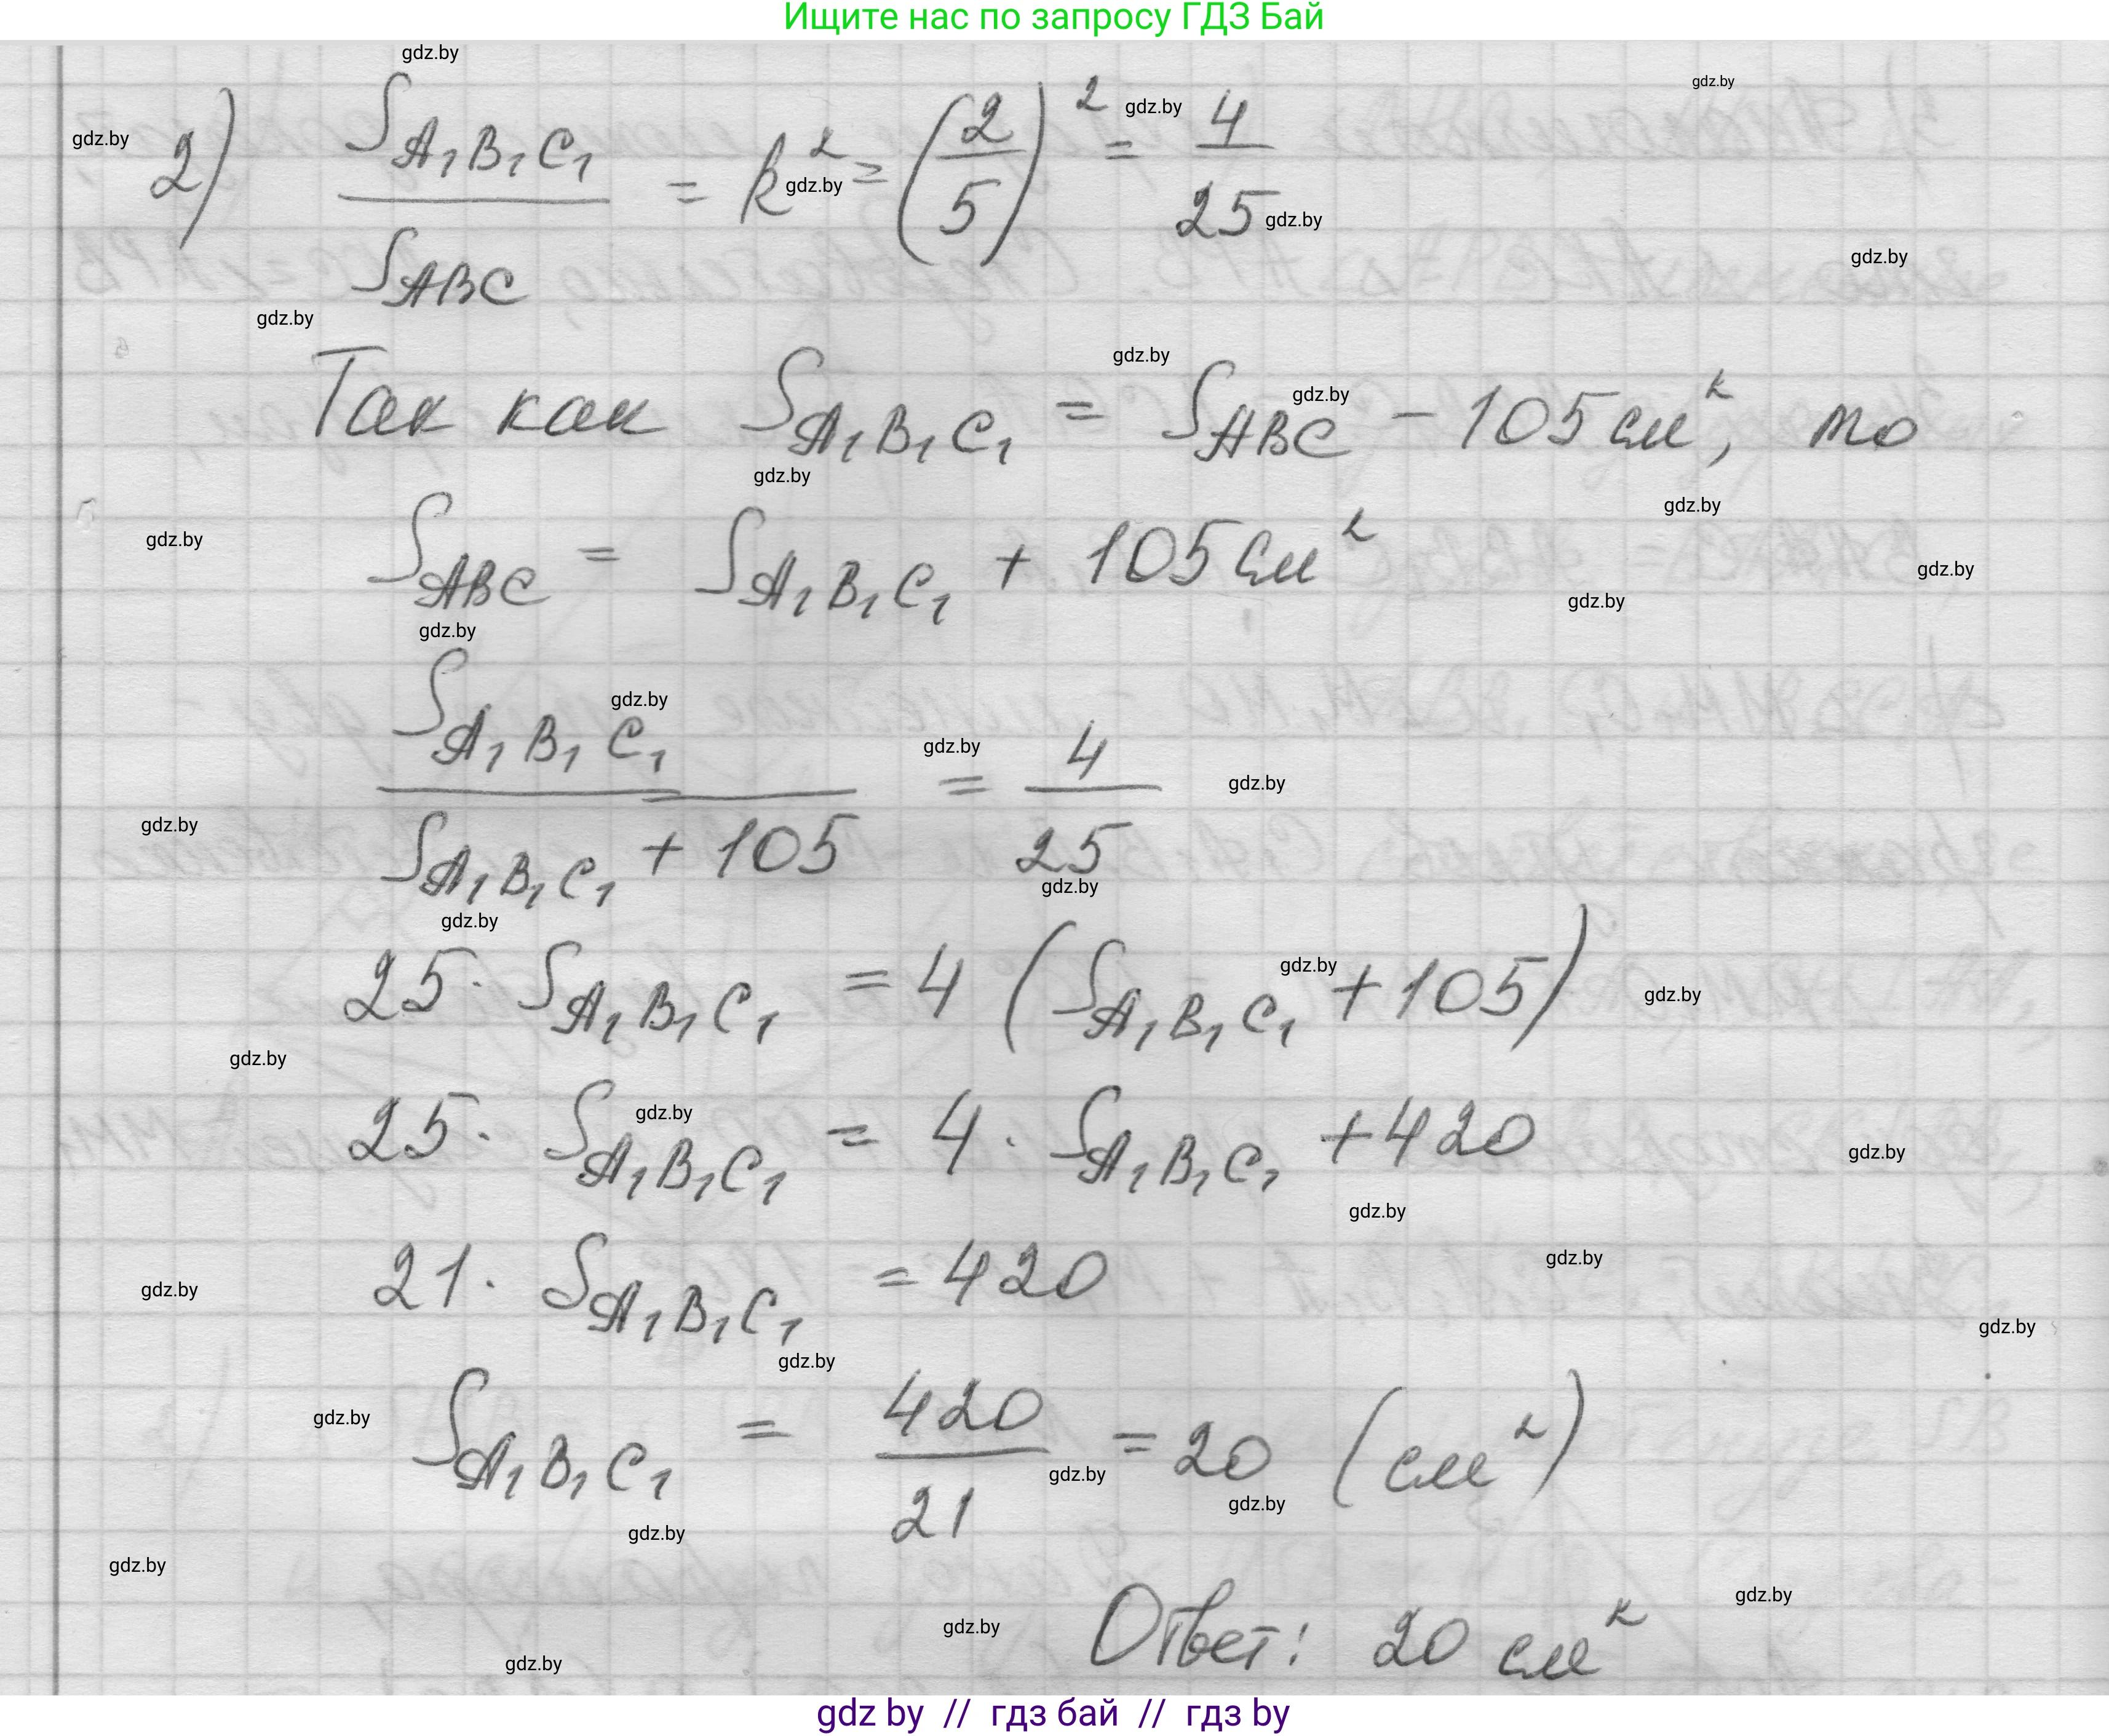 Ищите нас по запросу ГДЗ Бай
2) S_{A₁B₁C₁} / S_{ABC} = k² = (2/5)² = 4/25
Так как S_{A₁B₁C₁} = S_{ABC} − 105 см², то
S_{ABC} = S_{A₁B₁C₁} + 105 см²
S_{A₁B₁C₁} / (S_{A₁B₁C₁} + 105) = 4/25
25 · S_{A₁B₁C₁} = 4 (S_{A₁B₁C₁} + 105)
25 · S_{A₁B₁C₁} = 4 · S_{A₁B₁C₁} + 420
21 · S_{A₁B₁C₁} = 420
S_{A₁B₁C₁} = 420/21 = 20 (см²)
Ответ: 20 см²
gdz by // гдз бай // gdz by